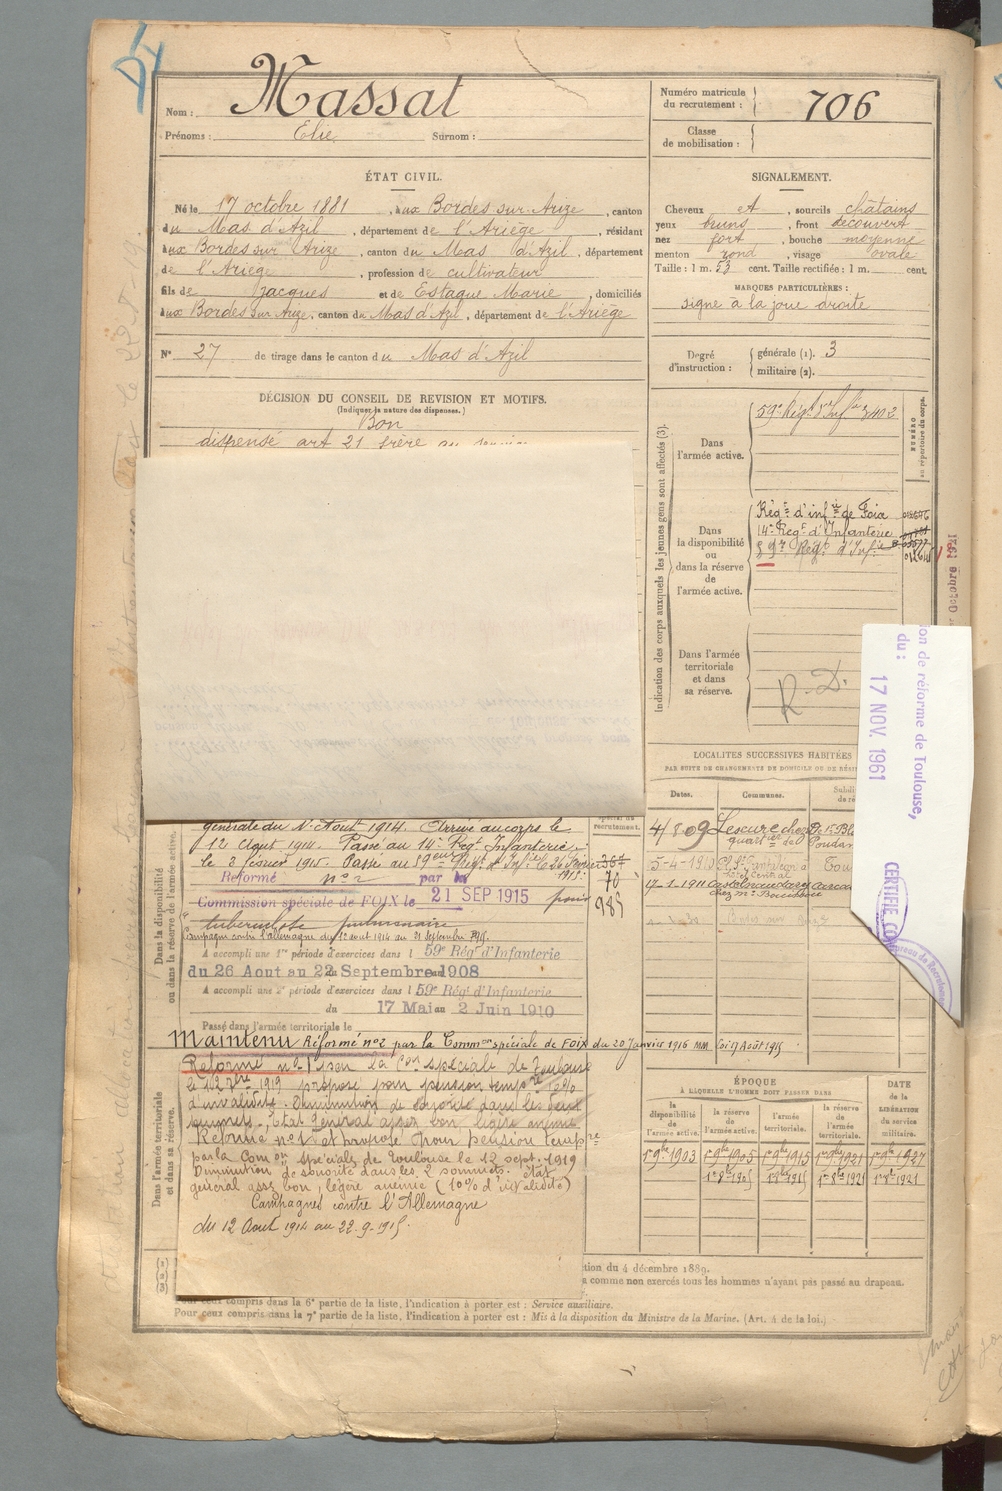 Nom : Massat
Prénoms : Elie Surnom :
Numéro matricule du recrutement : 706
Classe de mobilisation :
ÉTAT CIVIL.
Né le 17 octobre 1881, aux Bordes sur Arize, canton
du Mas d'Azil, département de l'Ariège, résidant
aux Bordes sur Arize, canton du Mas d'Azil, département
de l'Ariège, profession de cultivateur
fils de Jacques et de Estaque Marie, domiciliés
aux Bordes sur Arize, canton du Mas d'Azil, département de l'Ariège
N° 27 de tirage dans le canton du Mas d'Azil
SIGNALEMENT.
Cheveux et, sourcils châtains
yeux bruns, front découvert
nez fort, bouche moyenne
menton rond, visage ovale
Taille : 1 m. 53 cent. Taille rectifiée : 1 m. cent.
MARQUES PARTICULIÈRES :
signe à la joue droite
Degré d'instruction : générale (1). 3
militaire (2).
DÉCISION DU CONSEIL DE REVISION ET MOTIFS.
(Indiquer la nature des dispenses.)
Bon
dispensé art 21 frère au
Indication des corps auxquels les jeunes gens sont affectés (3).
NUMÉRO au répertoire du corps.
Dans l'armée active.
59e Régt d'Infie 3402
Dans la disponibilité ou dans la réserve de l'armée active.
Régt d'infie de Foix
14e Regt d'Infanterie
89e Régt d'Infie
Dans l'armée territoriale et dans sa réserve.
R. D.
Octobre 1921
ion de réforme de Toulouse,
du :
17 NOV. 1961
CERTIFIÉ CO
Bureau de Recrutement
LOCALITES SUCCESSIVES HABITÉES
PAR SUITE DE CHANGEMENTS DE DOMICILE OU DE RÉSI
Dates. Communes. Subdi
de ré
4/8 09 Lescure chez
quartier de
5-4-1910
17-1-1911 Castelnaudary
chez Mr
spécial du recrutement.
Dans la disponibilité ou dans la réserve de l'armée active.
générale du 1er Août 1914. Arrivé au corps le
12 Aout 1914. Passé au 14e Regt Infanterie
le 3 février 1915. Passé au 89eme Régt d'Infie le 26
1915.
70
983
Réformé n° 2 par la
Commission spéciale de FOIX le 21 SEP 1915 pour
tuberculose pulmonaire
Campagne contre l'Allemagne du 12 aout 1914 au 21 Septembre 1915.
A accompli une 1re période d'exercices dans l 59e Régt d'Infanterie
du 26 Aout au 22 Septembre 1908
A accompli une 2e période d'exercices dans l 59e Régt d'Infanterie
du 17 Mai au 2 Juin 1910
Passé dans l'armée territoriale le
Maintenu Réformé n°2 par la Common spéciale de FOIX du 20 Janvier 1916 MM Loi 17 Août 1915
Dans l'armée territoriale et dans sa réserve.
Réformé n° 1 Son la Con spéciale de Toulouse
le 12 7bre 1919 proposé pour pension tempre 10%
d'invalidité. Diminution de sonorité dans les deux
sommets, Etat Général assez bon, légère anémie
Réformé n°1 et proposé pour pension tempre
par la Comon spéciale de Toulouse le 12 sept. 1919
Diminution de sonorité dans les 2 sommets. état
général assz bon, légère anémie (10% d'invalidité)
Campagnes contre l'Allemagne
du 12 Aout 1914 au 22.9.1915.
ÉPOQUE
À LAQUELLE L'HOMME DOIT PASSER DANS
la disponibilité de l'armée active.
la réserve de l'armée active.
l'armée territoriale.
la réserve de l'armée territoriale.
DATE de la LIBÉRATION du service militaire.
1er 9bre 1903 1er 9bre 1905 1er 9bre 1915 1er 9bre 1921 1er 9bre 1927
tion du 4 décembre 1889.
a comme non exercés tous les hommes n'ayant pas passé au drapeau.
Pour ceux compris dans la 6e partie de la liste, l'indication à porter est : Service auxiliaire.
Pour ceux compris dans la 7e partie de la liste, l'indication à porter est : Mis à la disposition du Ministre de la Marine. (Art. 4 de la loi.)